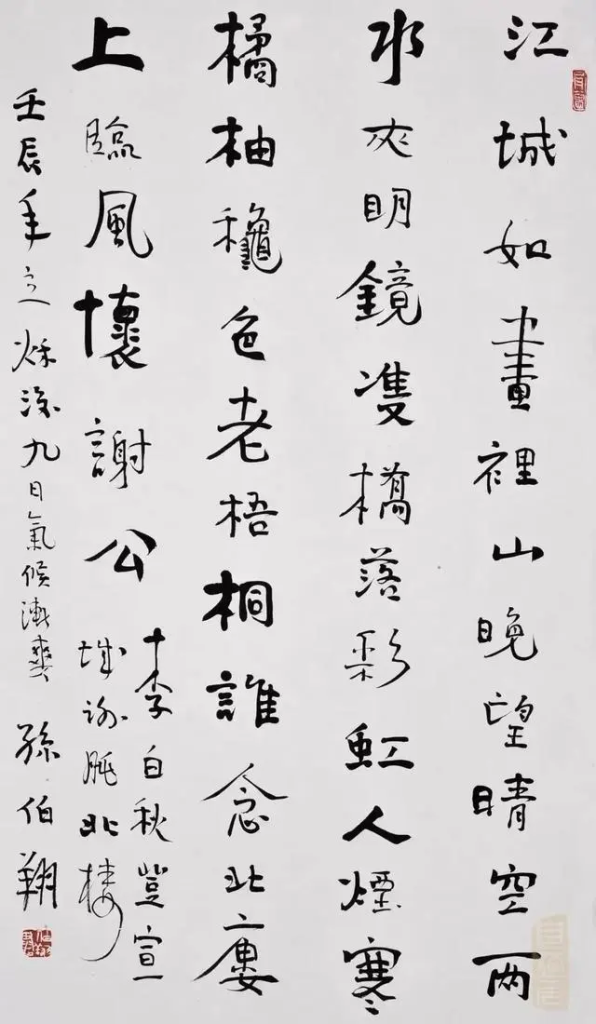 江城如畫裡山晚望晴空兩
水夾明鏡雙橋落彩虹人煙寒
橘柚穐色老梧桐誰念北廔
上臨風懷謝公
李白秋登宣
城謝朓北樓
壬辰年立秌後九日氣候漸爽 孫伯翔